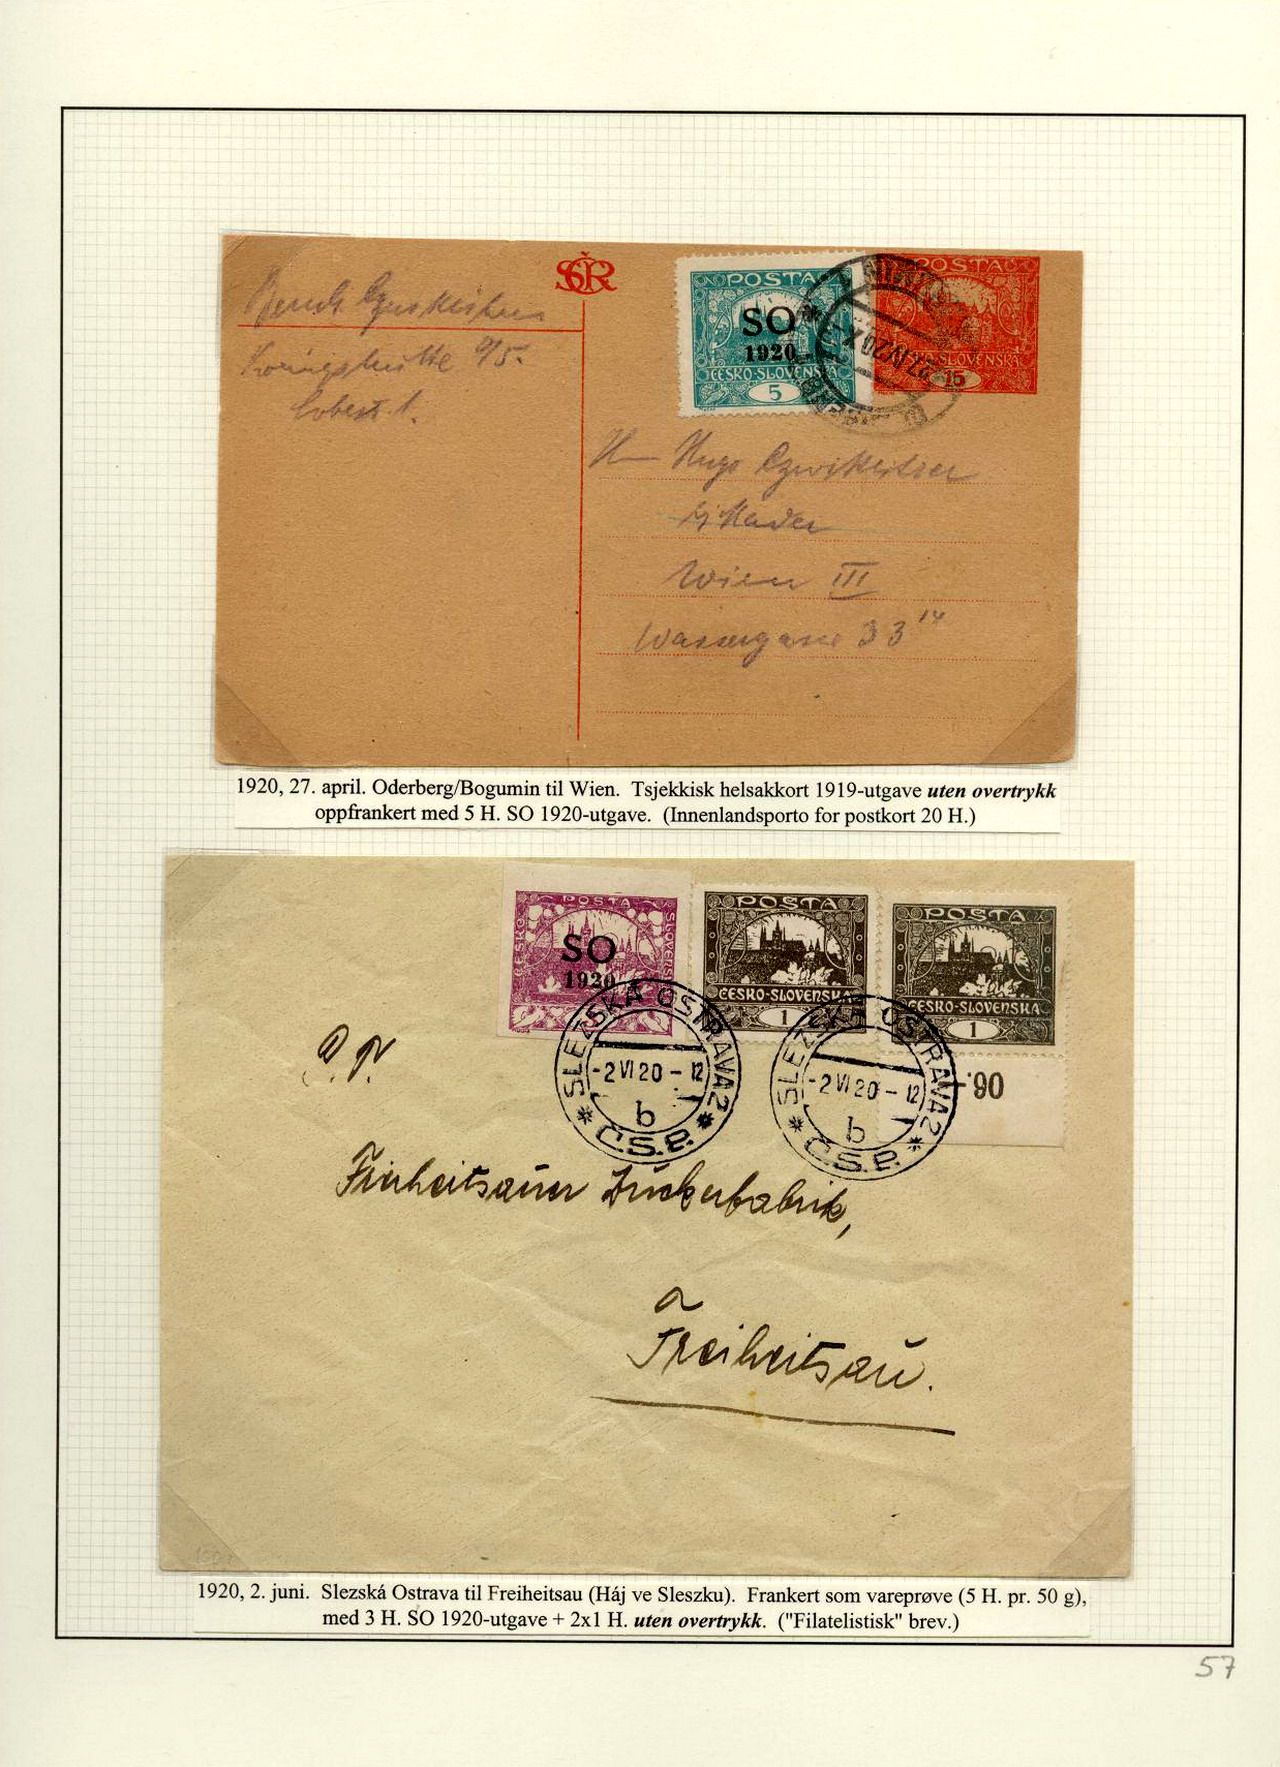 SČR
POSTA
SO
1920
ČESKO-SLOVENSKA
5
POSTA
ČESKO-SLOVENSKA
15
27.IV.20
Königshütte O/S.
Hugo
Wien III
Wassergasse 33 14
1920, 27. april. Oderberg/Bogumin til Wien. Tsjekkisk helsakkort 1919-utgave uten overtrykk
oppfrankert med 5 H. SO 1920-utgave. (Innenlandsporto for postkort 20 H.)
POSTA
ČESKO
SLOVENSKA
SO
1920
POSTA
ČESKO-SLOVENSKA
1
POSTA
ČESKO-SLOVENSKA
1
SLEZSKÁ OSTRAVA 2
-2 VI 20 - 12
b
Č.S.P.
SLEZSKÁ OSTRAVA 2
-2 VI 20 - 12
b
Č.S.P.
90
Freiheitsauer Zuckerfabrik,
a
Freiheitsau.
1920, 2. juni. Slezská Ostrava til Freiheitsau (Háj ve Sleszku). Frankert som vareprøve (5 H. pr. 50 g),
med 3 H. SO 1920-utgave + 2x1 H. uten overtrykk. ("Filatelistisk" brev.)
57